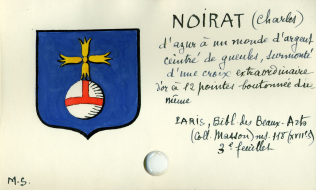 NOIRAT (Charles)
d'azur à un monde d'argent
ceintré de gueules, surmonté
d'une croix extraordinaire
d'or à 12 pointes boutonnée du
même
PARIS, Bibl. des Beaux-Arts
(Coll. Masson) ms. 118 (XVIIe s.)
3e feuillet
M.S.